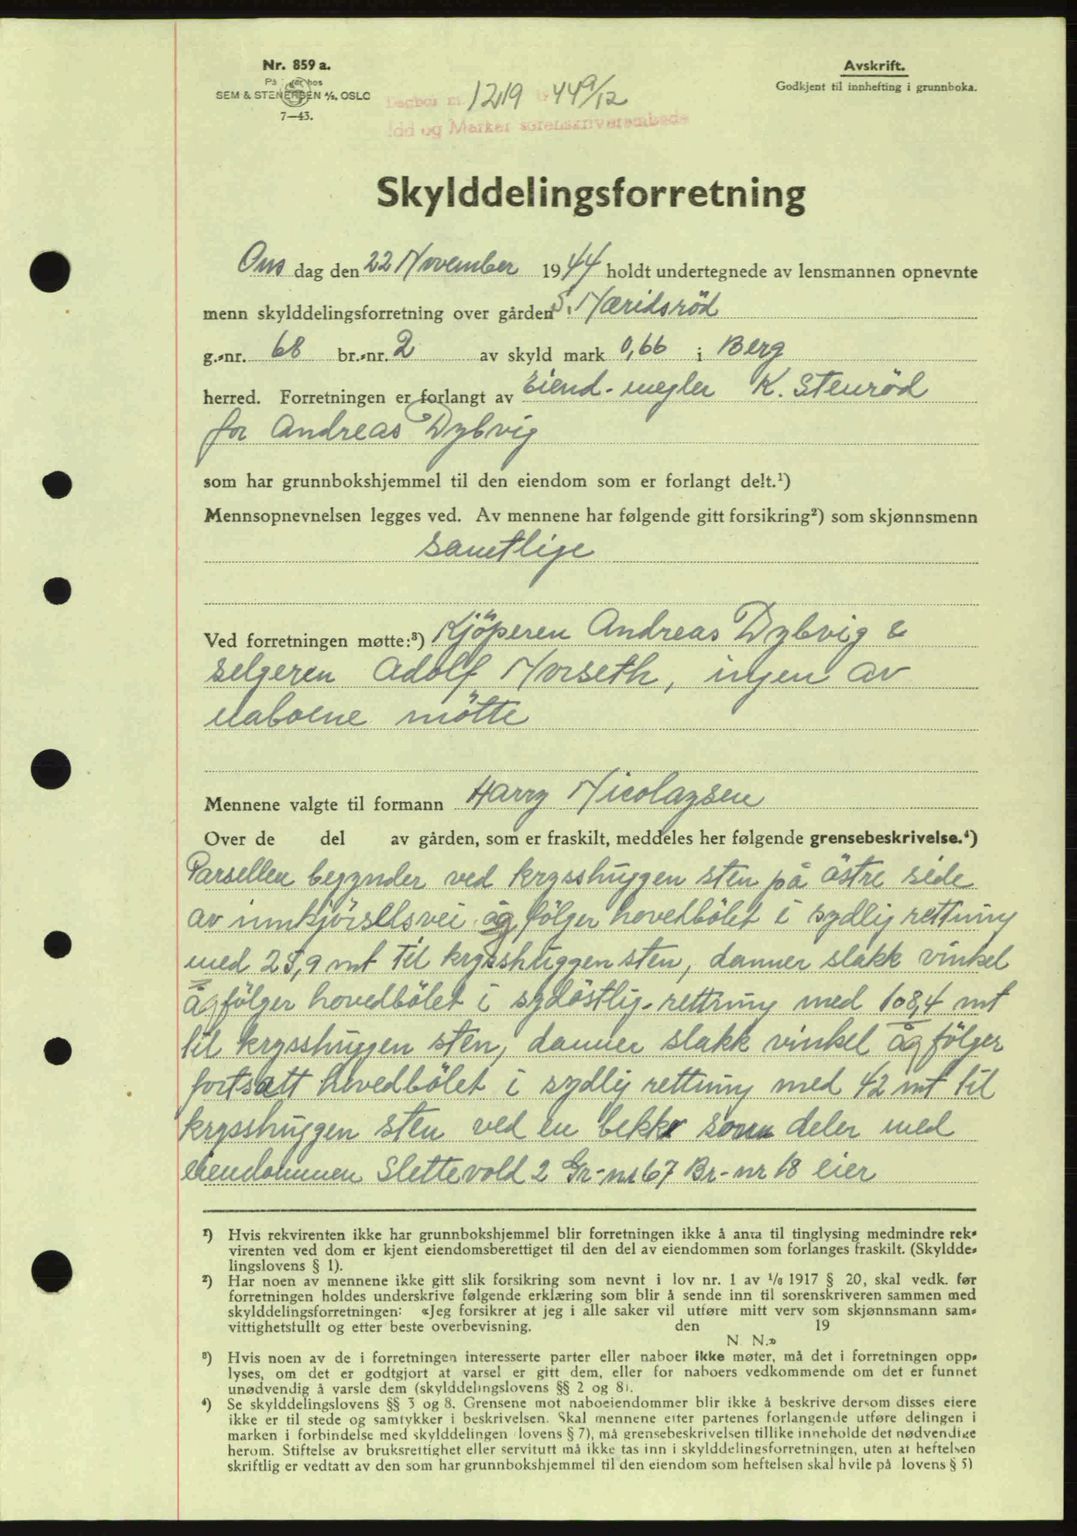 Nr. 859 a.
På lager hos
SEM & STENERSEN A/S, OSLO
7—43.
Avskrift.
Godkjent til innhefting i grunnboka.
Dagbok nr. 1219 1944 9/12
Idd og Marker sorenskriverembede
Skylddelingsforretning
Ons dag den 22 November 1944 holdt undertegnede av lensmannen opnevnte
menn skylddelingsforretning over gården S. Næridsröd
g.-nr. 68 br.-nr. 2 av skyld mark 0,66 i Berg
herred. Forretningen er forlangt av Eiend-megler K. Stenröd
for Andreas Dybvig
som har grunnbokshjemmel til den eiendom som er forlangt delt.¹)
Mennsopnevnelsen legges ved. Av mennene har følgende gitt forsikring²) som skjønnsmenn
samtlige
Ved forretningen møtte:³) Kjöperen Andreas Dybvig &
selgeren Adolf Norseth, ingen av
naboene mötte
Mennene valgte til formann Harry Nicolaysen
Over de del av gården, som er fraskilt, meddeles her følgende grensebeskrivelse.⁴)
Parsellen begynder ved krysshuggen sten på östre side
av innkjörselsvei åg fölger hovedbölet i sydlig rettning
med 25,9 mt til krysshuggen sten, danner slakk vinkel
åg fölger hovedbölet i sydöstlig-rettning med 108,4 mt
til krysshuggen sten, danner slakk vinkel åg fölger
fortsatt hovedbölet i sydlig rettning med 42 mt til
krysshuggen sten ved en bekk som deler med
eiendommen Slettevold 2 Gr-nr 67 Br-nr 18 eier
¹) Hvis rekvirenten ikke har grunnbokshjemmel blir forretningen ikke å anta til tinglysing medmindre rek-
virenten ved dom er kjent eiendomsberettiget til den del av eiendommen som forlanges fraskilt. (Skyldde-
lingslovens § 1).
²) Har noen av mennene ikke gitt slik forsikring som nevnt i lov nr. 1 av 1/6 1917 § 20, skal vedk. før
forretningen holdes underskrive følgende erklæring som blir å sende inn til sorenskriveren sammen med
skylddelingsforretningen: «Jeg forsikrer at jeg i alle saker vil utføre mitt verv som skjønnsmann sam-
vittighetsfullt og etter beste overbevisning. den 19
N. N.»
³) Hvis noen av de i forretningen interesserte parter eller naboer ikke møter, må det i forretningen opp-
lyses, om det er godtgjort at varsel er gitt dem, eller for naboers vedkommende om det er funnet
unødvendig å varsle dem (skylddelingslovens §§ 2 og 8).
⁴) Se skylddelingslovens §§ 3 og 8. Grensene mot naboeiendommer blir ikke å beskrive dersom disses eiere
ikke er til stede og samtykker i beskrivelsen. Skal mennene etter partenes forlangende utføre delingen i
marken i forbindelse med skylddelingen (lovens § 7), må grensebeskrivelsen tillike inneholde det nødvendige
herom. Stiftelse av bruksrettighet eller servitutt må ikke tas inn i skylddelingsforretningen, uten at heftelsen
skriftlig er vedtatt av den som har grunnbokshjemmel til den eiendom som heftelsen skal hvile på (lovens § 5)